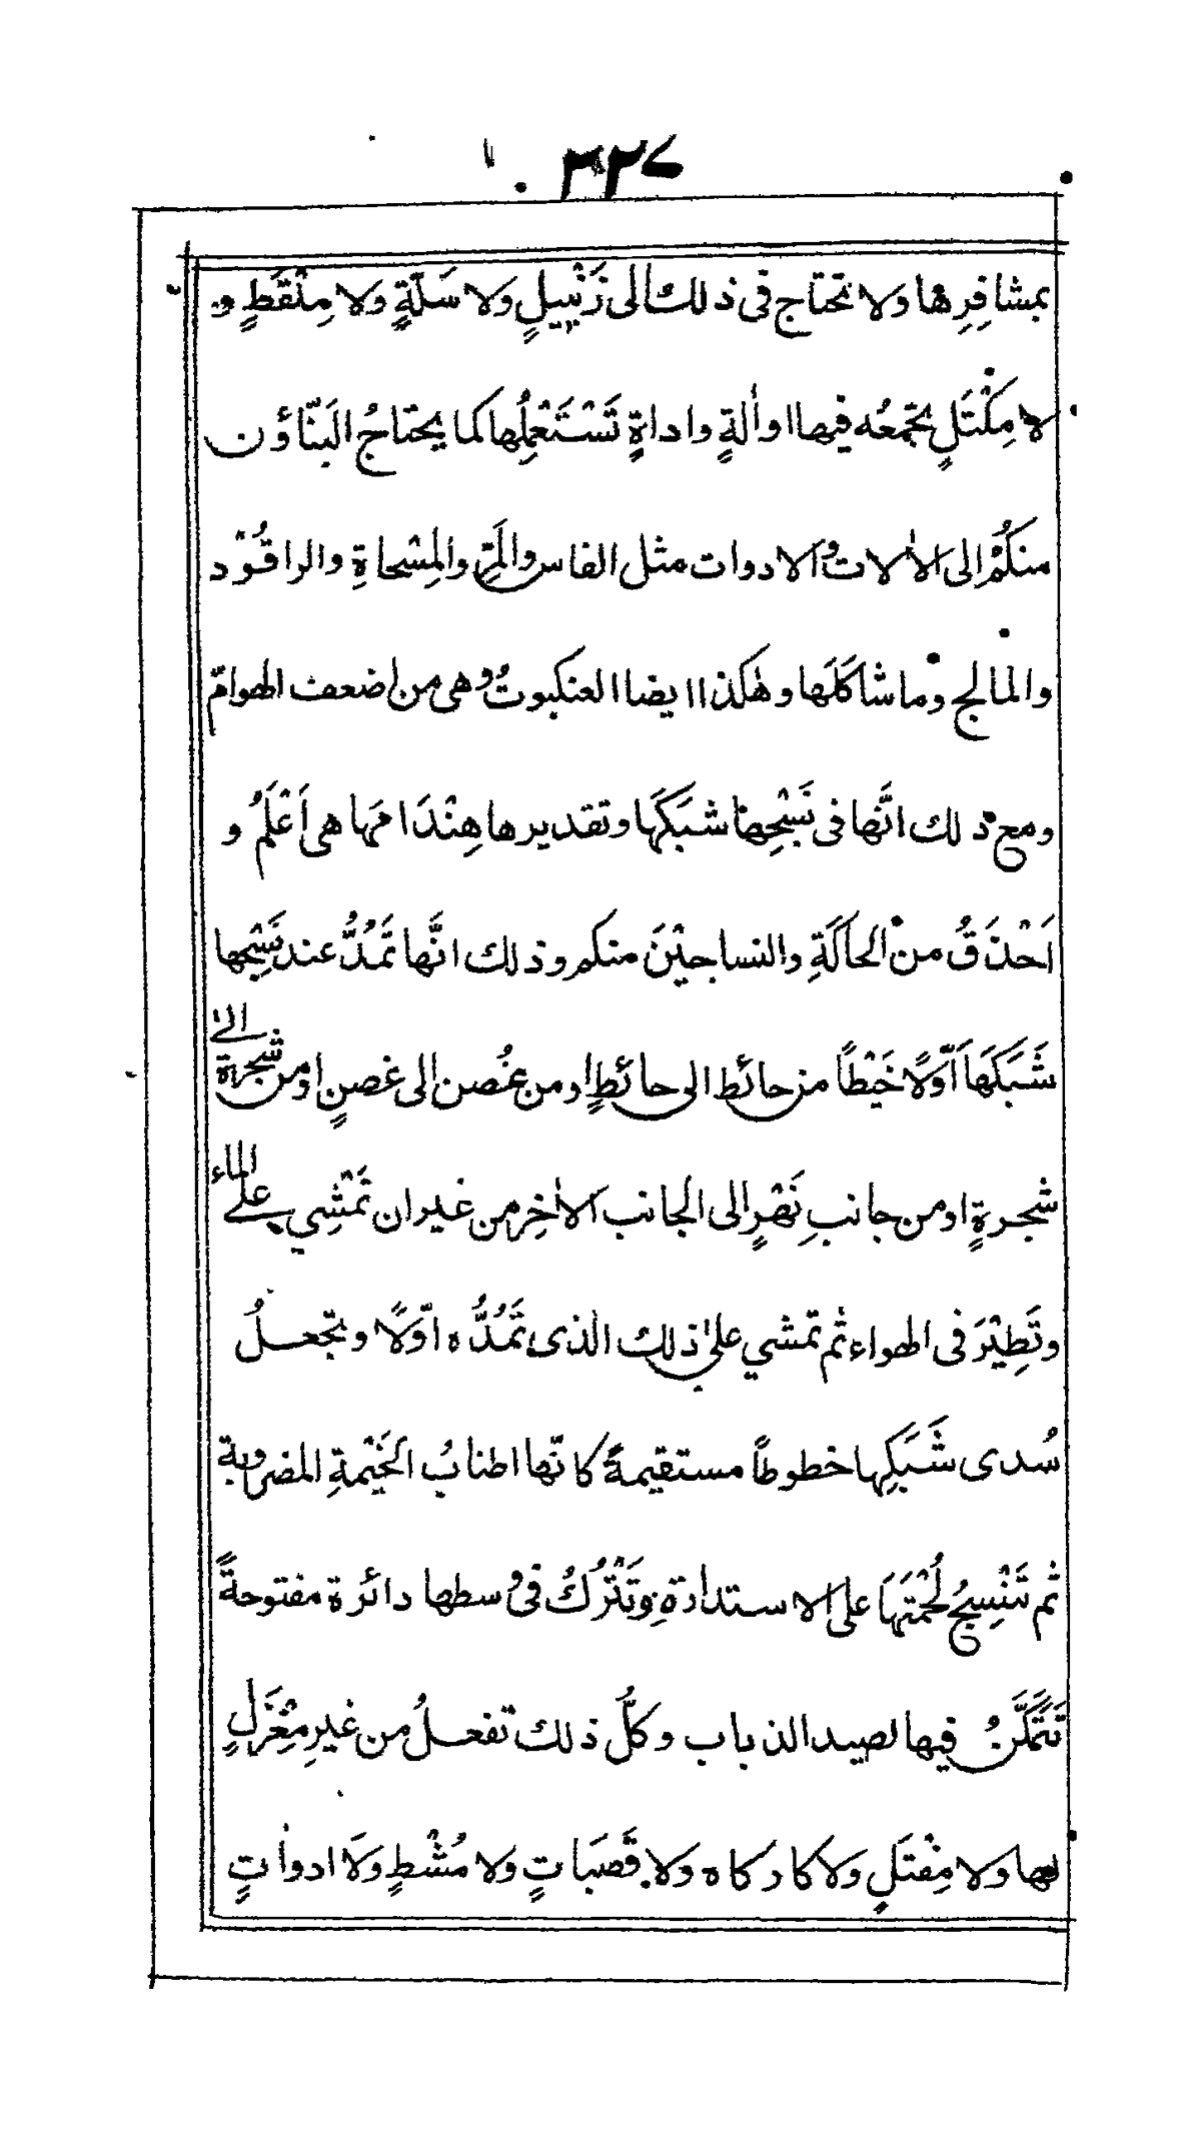 ٣٢٧
بمشافِرِها ولا تحتاج فى ذلك الى زَنْبِيلٍ ولا سَلّةٍ ولا مِنْقَطٍ و
لا مِكْتَلٍ تجمعُه فيها او اٰلةٍ واداةٍ تَسْتَعْمِلُها كما يحتاجُ البَنّاؤن
منكُمْ الى الاٰلات والادوات مثل الفاس والمَرِّ والمِسْحاةِ والراقُوْد
والمالج وما شاكَلَها وهٰكذا ايضا العنكبوتُ وهى من اضعف الهوامّ
ومع ذلك انَّها فى نَسْجِها شَبَكَها وتقديرها هِنْدَامَها هى اَعْلَمُ و
اَحْذَقُ من الحاكَةِ والنساجيْنَ منكم وذلك انَّها تَمُدُّ عند نَسْجِها
شَبَكَهَا اَوّلًا خَيْطاً من حائط الى حائطٍ او من غُصن الى غصنٍ او من شجرة الىٰ
شجرةٍ او من جانبِ نَهْرٍ الى الجانب الاٰخِر من غير ان تَمْشِي علے الماء
وتَطِيْرَ فى الهواء ثم تمشي علىٰ ذلك الذى تَمُدُّه اوّلًا وتجعلُ
سُدى شَبَكِها خطوطاً مستقيمةً كانّها اطنابُ الخَيْمةِ المضروبة
ثم تَنْسِجُ لُحْمَتَهَا على الاستدارةِ وتَتْرُكُ فى وسطها دائرة مفتوحةً
تَتَمَكَّنُ فيها لصيد الذباب وكلّ ذلك تفعلُ من غيرِ مِغْزَلٍ
لها ولا مِفْتَلٍ ولا كاركاه ولا قَصَباتٍ ولا مُشْطٍ ولَا ادواتٍ